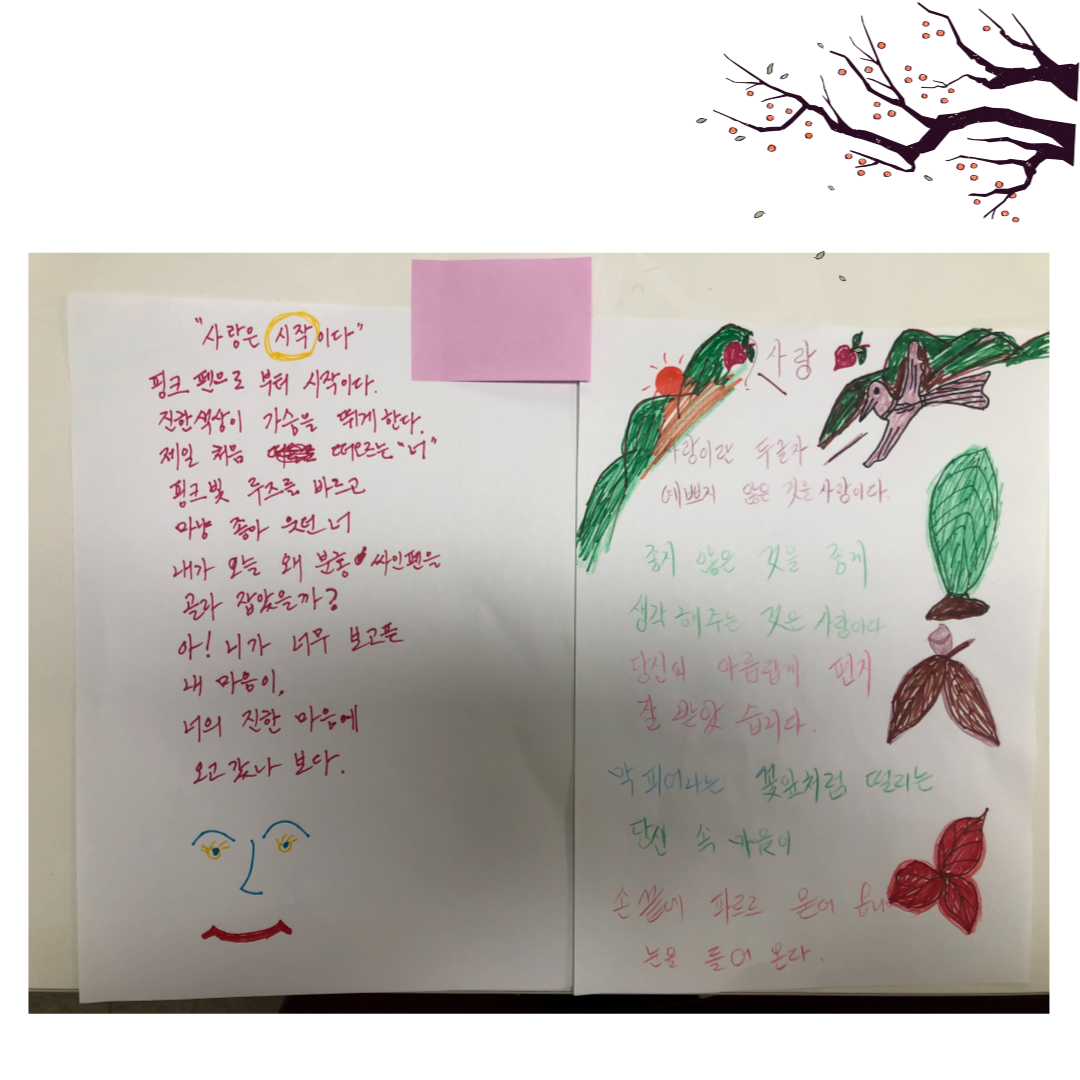 "사랑은 시작이다"
핑크 펜으로 부터 시작이다.
진한색상이 가슴을 뛰게한다.
제일 처음 떠오르는 "너"
핑크빛 루즈를 바르고
마냥 좋아 웃던 너
내가 오늘 왜 분홍 싸인펜을
골라 잡았을까?
아! 니가 너무 보고픈
내 마음이,
너의 진한 마음에
오고갔나 보다.
사랑
사랑이란 두글자
예쁘지 않은 것을 사랑이다.
좋지 않은 것을 좋게
생각해주는 것은 사랑이다
당신의 아름답게 편지
잘 받았습니다.
막 피어나는 꽃잎처럼 떨리는
당신 속 마음이
손 파르르 묻어
눈을 들어 본다.